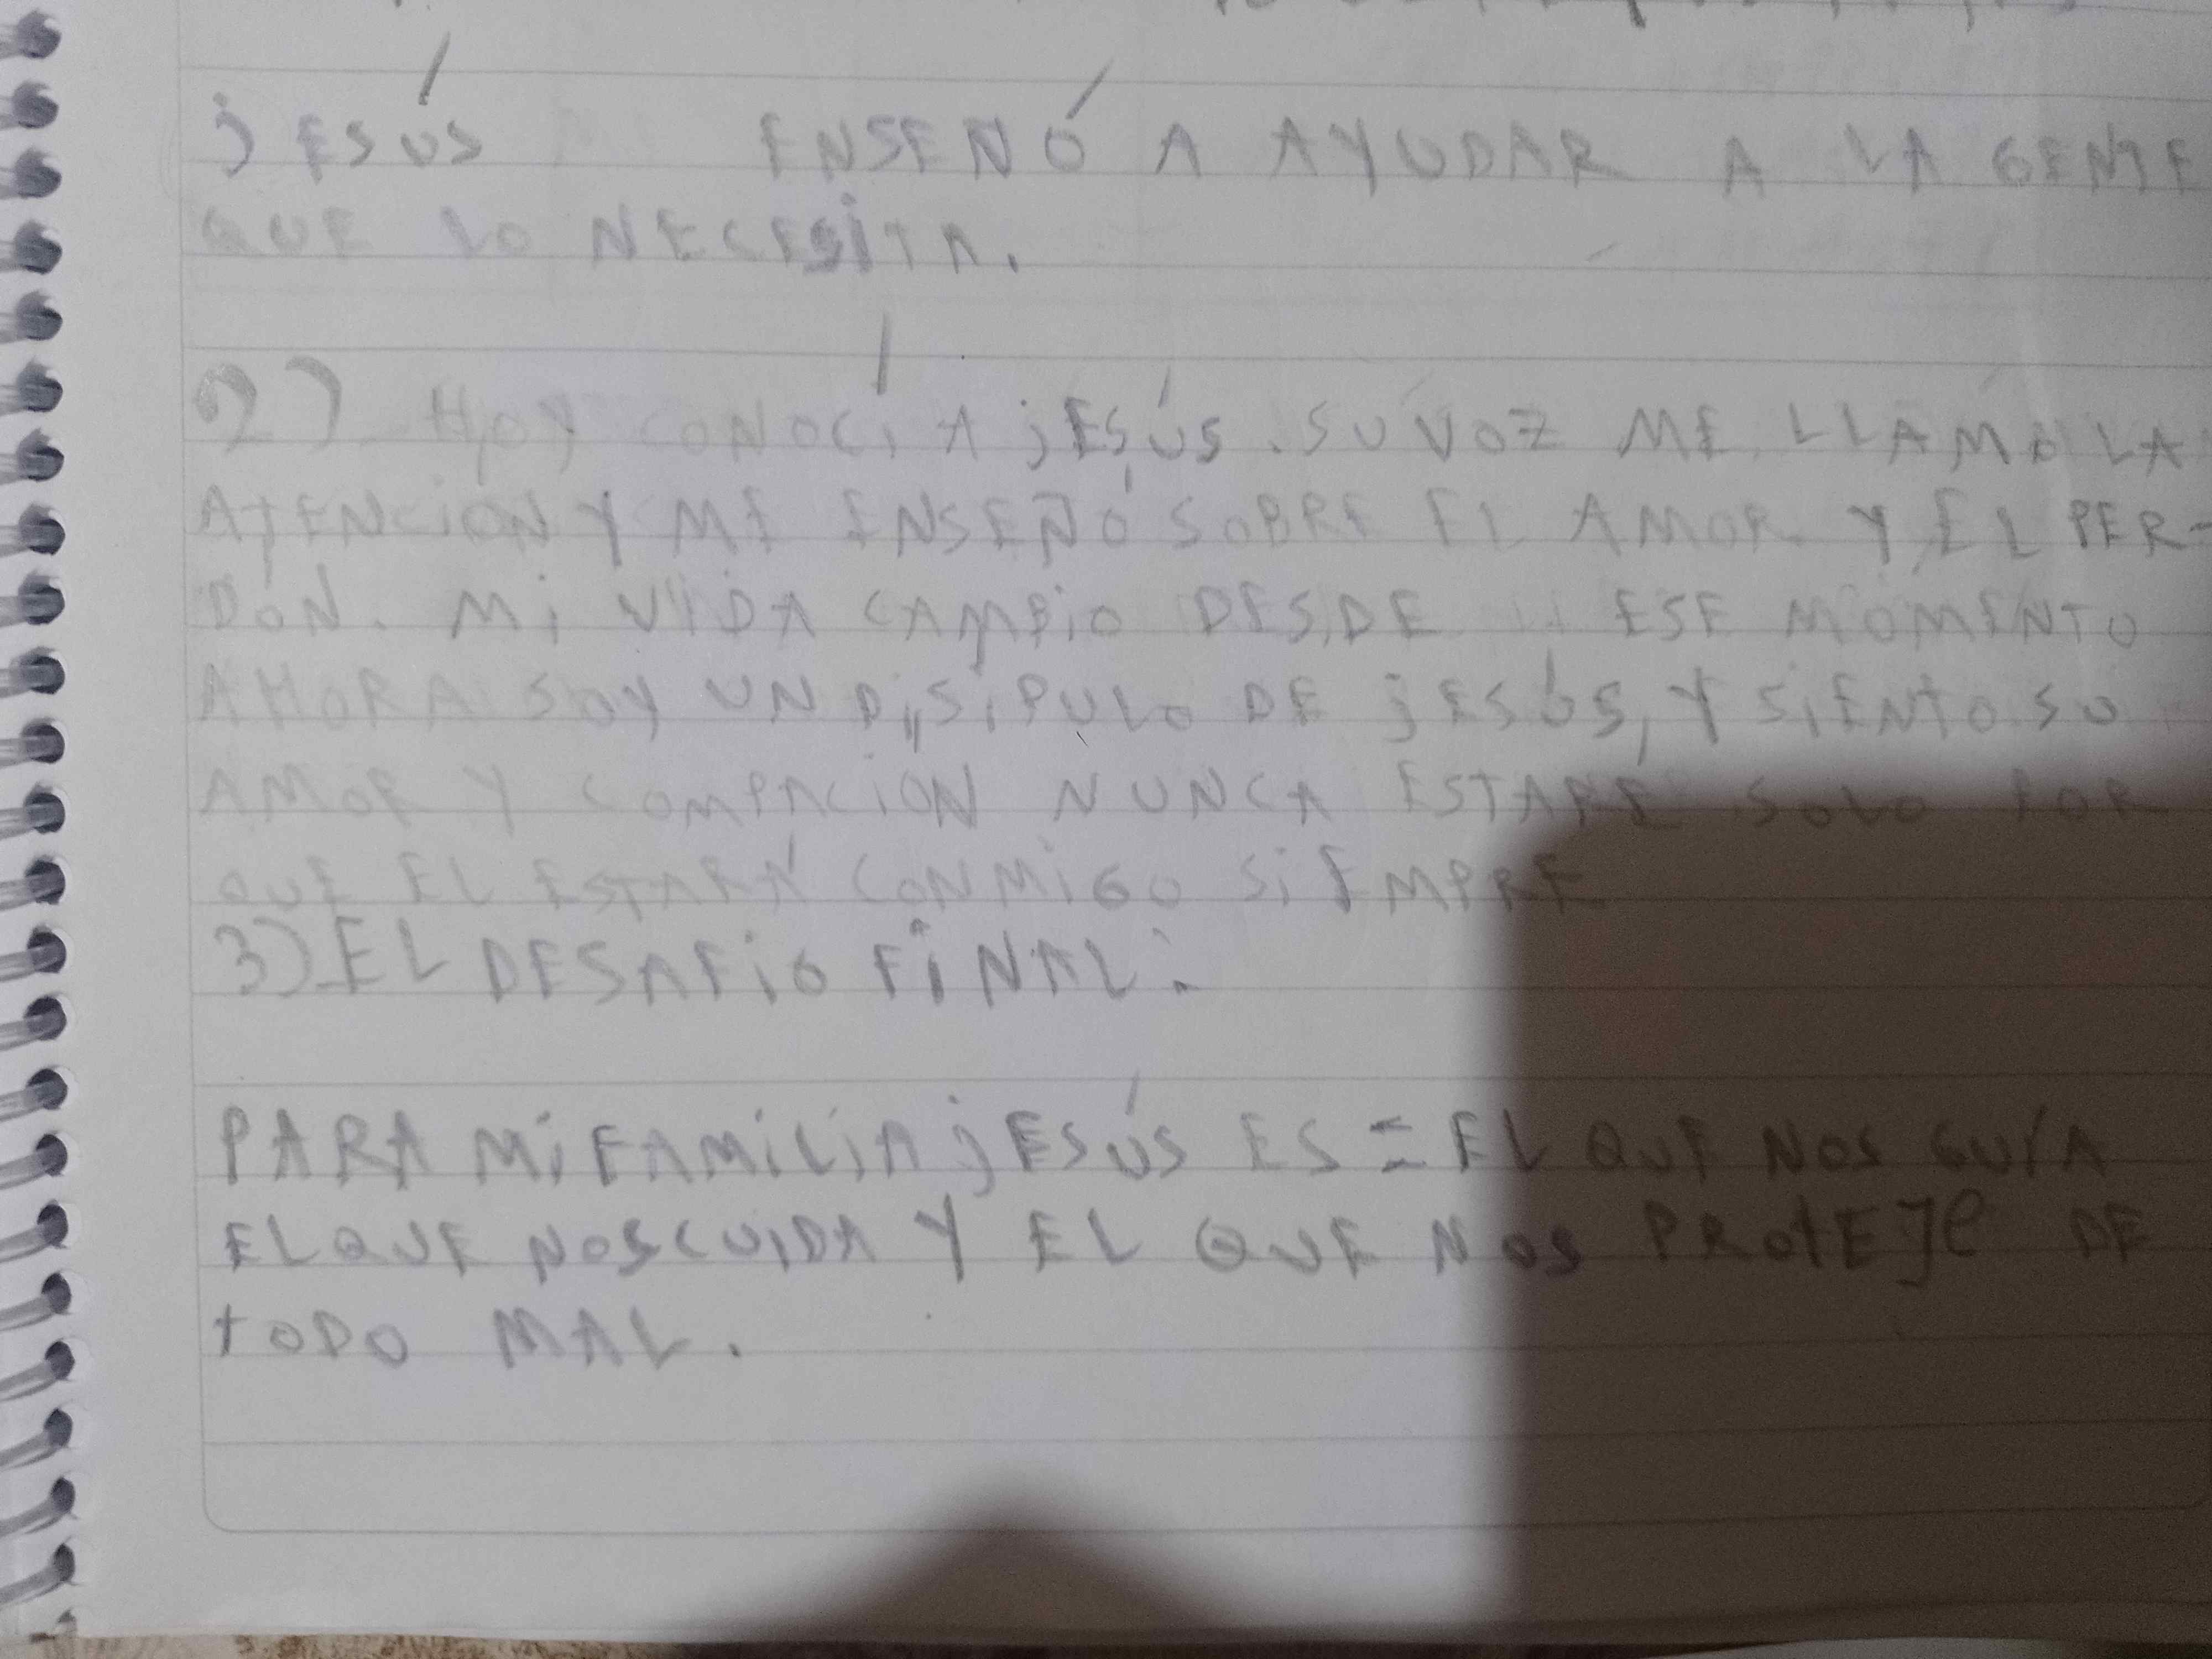 jESÚS ENSEÑÓ A AYUDAR A LA GENTE
QUE LO NECESITA.
2) HOY CONOCÍ A jESÚS. SU VOZ ME LLAMÓ LA
ATENCIÓN Y ME ENSEÑÓ SOBRE EL AMOR Y EL PER-
DÓN. Mi VIDA CAMBiO DESDE ESE MOMENTO
AHORA SOY UN DiSiPULO DE jESÚS, Y SiENTO SU
AMOR Y COMPACIÓN NUNCA ESTARÉ SOLO POR
QUE EL ESTARÁ CONMiGO SiEMPRE
3) EL DESAFiO FiNAL:
PARA Mi FAMiLiA jESÚS ES = EL QUE NOS GUÍA
EL QUE NOS CUIDA Y EL QUE NOS PROtEJe DE
tODO MAL.